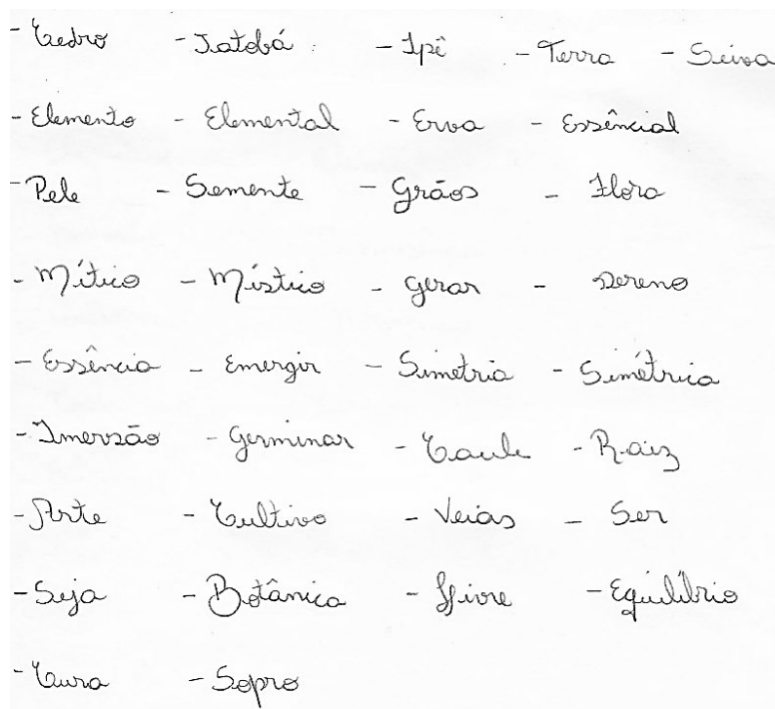 - Cedro - Jatobá - Ipê - Terra - Seiva
- Elemento - Elemental - Erva - Essêncial
- Pele - Semente - Grãos - Flora
- Mítico - Místico - gerar - sereno
- Essência - Emergir - Simetria - Simétrica
- Imersão - Germinar - Caule - Raiz
- Arte - Cultivo - Veias - Ser
- Seja - Botânica - Livre - Equilíbrio
- Cura - Sopro